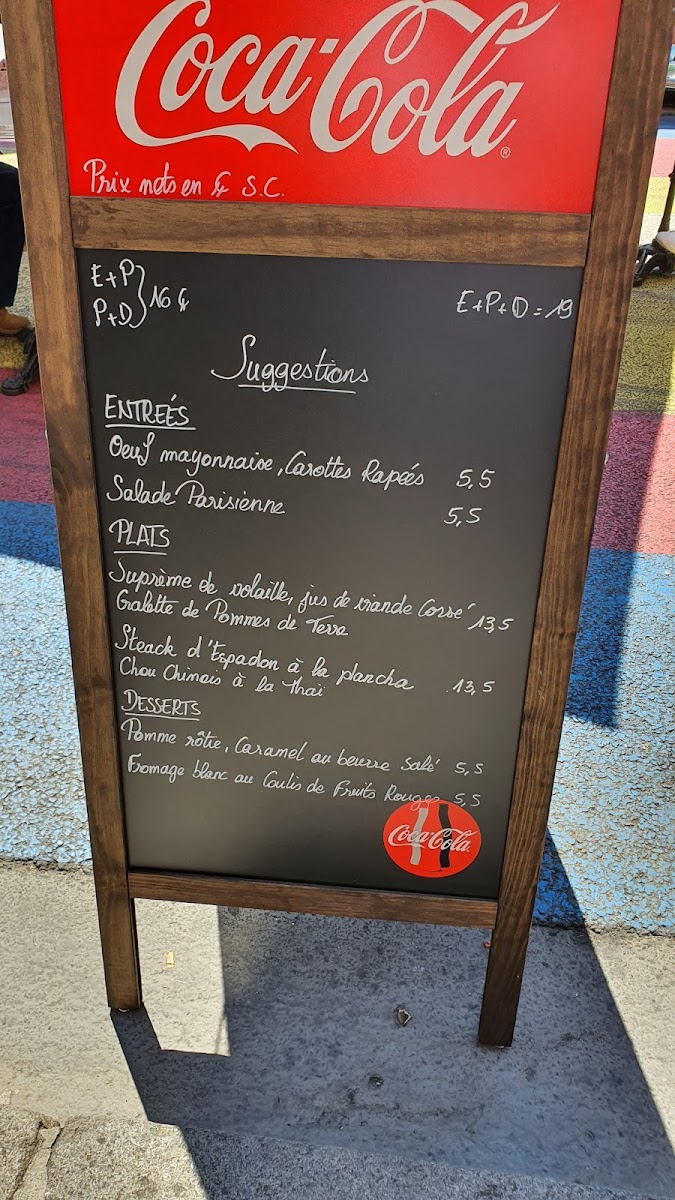 Coca-Cola®
Prix nets en € S.C.
E+P
P+D } 16 €
E+P+D = 19
Suggestions
ENTREÉS
Oeuf mayonnaise, Carottes Rapéés 5,5
Salade Parisienne 5,5
PLATS
Suprème de volaille, jus de viande Corsé
Galette de Pommes de Terre 13,5
Steack d'Espadon à la plancha
Chou Chinois à la Thaï 13,5
DESSERTS
Pomme rôtie, Caramel au beurre Salé 5,5
Fromage blanc au Coulis de Fruits Rouges 5,5
Coca-Cola